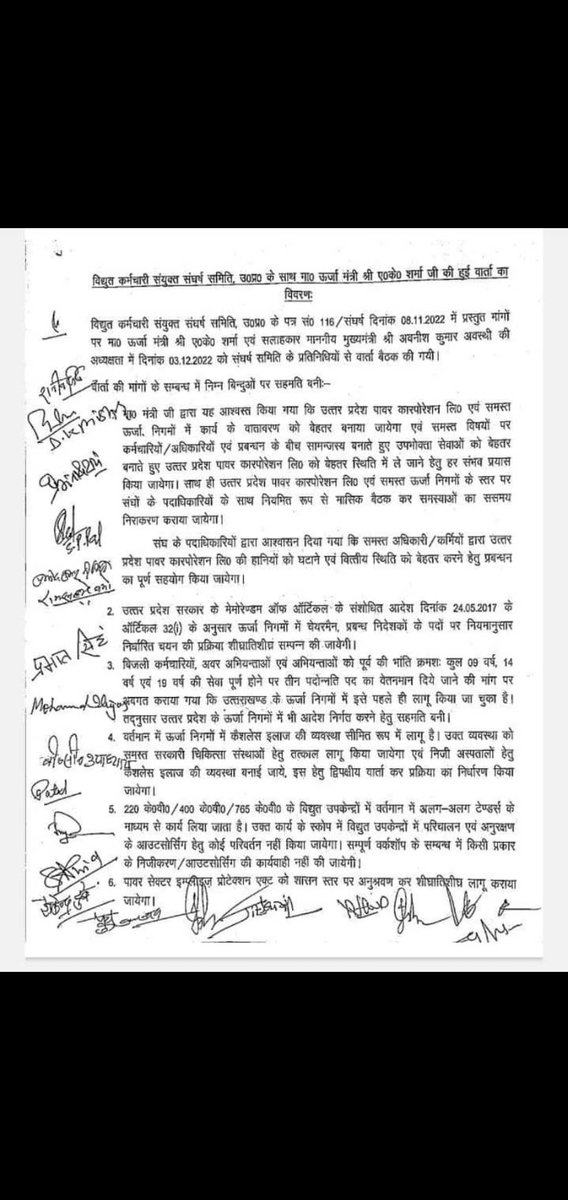 विद्युत कर्मचारी संयुक्त संघर्ष समिति, उ0प्र0 के साथ मा0 ऊर्जा मंत्री श्री ए0के0 शर्मा जी की हुई वार्ता का
विवरणः
विद्युत कर्मचारी संयुक्त संघर्ष समिति, उ0प्र0 के पत्र सं0 116/संघर्ष दिनांक 08.11.2022 में प्रस्तुत मांगों
पर मा0 ऊर्जा मंत्री श्री ए0के0 शर्मा एवं सलाहकार माननीय मुख्यमंत्री श्री अवनीश कुमार अवस्थी की
अध्यक्षता में दिनांक 03.12.2022 को संघर्ष समिति के प्रतिनिधियों से वार्ता बैठक की गयी।
वार्ता की मांगों के सम्बन्ध में निम्न बिन्दुओं पर सहमति बनीः-
मंत्री जी द्वारा यह आश्वस्त किया गया कि उत्तर प्रदेश पावर कारपोरेशन लि0 एवं समस्त
ऊर्जा. निगमों में कार्य के वातावरण को बेहतर बनाया जायेगा एवं समस्त विषयों पर
कर्मचारियों/अधिकारियों एवं प्रबन्धन के बीच सामन्जस्य बनाते हुए उपभोक्ता सेवाओं को बेहतर
बनाते हुए उत्तर प्रदेश पावर कारपोरेशन लि0 को बेहतर स्थिति में ले जाने हेतु हर संभव प्रयास
किया जायेगा। साथ ही उत्तर प्रदेश पावर कारपोरेशन लि0 एवं समस्त ऊर्जा निगमों के स्तर पर
संघों के पदाधिकारियों के साथ नियमित रूप से मासिक बैठक कर समस्याओं का ससमय
निराकरण कराया जायेगा।
संघ के पदाधिकारियों द्वारा आश्वासन दिया गया कि समस्त अधिकारी/कर्मियों द्वारा उत्तर
प्रदेश पावर कारपोरेशन लि0 की हानियों को घटाने एवं वित्तीय स्थिति को बेहतर करने हेतु प्रबन्धन
का पूर्ण सहयोग किया जायेगा।
2. उत्तर प्रदेश सरकार के मेमोरेण्डम ऑफ ऑर्टिकल के संशोधित आदेश दिनांक 24.05.2017 के
ऑर्टिकल 32(i) के अनुसार ऊर्जा निगमों में चेयरमैन, प्रबन्ध निदेशकों के पदों पर नियमानुसार
निर्धारित चयन की प्रक्रिया शीघातिशीघ्र सम्पन्न की जायेगी।
3. बिजली कर्मचारियों, अवर अभियन्ताओं एवं अभियन्ताओं को पूर्व की भांति क्रमशः कुल 09 वर्ष, 14
वर्ष एवं 19 वर्ष की सेवा पूर्ण होने पर तीन पदोन्नति पद का वेतनमान दिये जाने की मांग पर
अवगत कराया गया कि उत्तराखण्ड के ऊर्जा निगमों में इसे पहले ही लागू किया जा चुका है।
तद्नुसार उत्तर प्रदेश के ऊर्जा निगमों में भी आदेश निर्गत करने हेतु सहमति बनी।
4. वर्तमान में ऊर्जा निगमों में कैशलेस इलाज की व्यवस्था सीमित रूप में लागू है। उक्त व्यवस्था को
समस्त सरकारी चिकित्सा संस्थाओं हेतु तत्काल लागू किया जायेगा एवं निजी अस्पतालों हेतु
कैशलेस इलाज की व्यवस्था बनाई जाये, इस हेतु द्विपक्षीय वार्ता कर प्रक्रिया का निर्धारण किया
जायेगा।
5. 220 के0वी0/400 के0वी0/765 के0वी0 के विद्युत उपकेन्द्रों में वर्तमान में अलग-अलग टेण्डर्स के
माध्यम से कार्य लिया जाता है। उक्त कार्य के स्कोप में विद्युत उपकेन्द्रों में परिचालन एवं अनुरक्षण
के आउटसोर्सिंग हेतु कोई परिवर्तन नहीं किया जायेगा। सम्पूर्ण वर्कशॉप के सम्बन्ध में किसी प्रकार
के निजीकरण/आउटसोर्सिंग की कार्यवाही नहीं की जायेगी।
6. पावर सेक्टर इम्प्लाइज प्रोटेक्शन एक्ट को शासन स्तर पर अनुश्रवण कर शीघातिशीघ लागू कराया
जायेगा।
D.K. Mishra
S.P. Pal
प्रभात सिंह
Mohammad
Patel